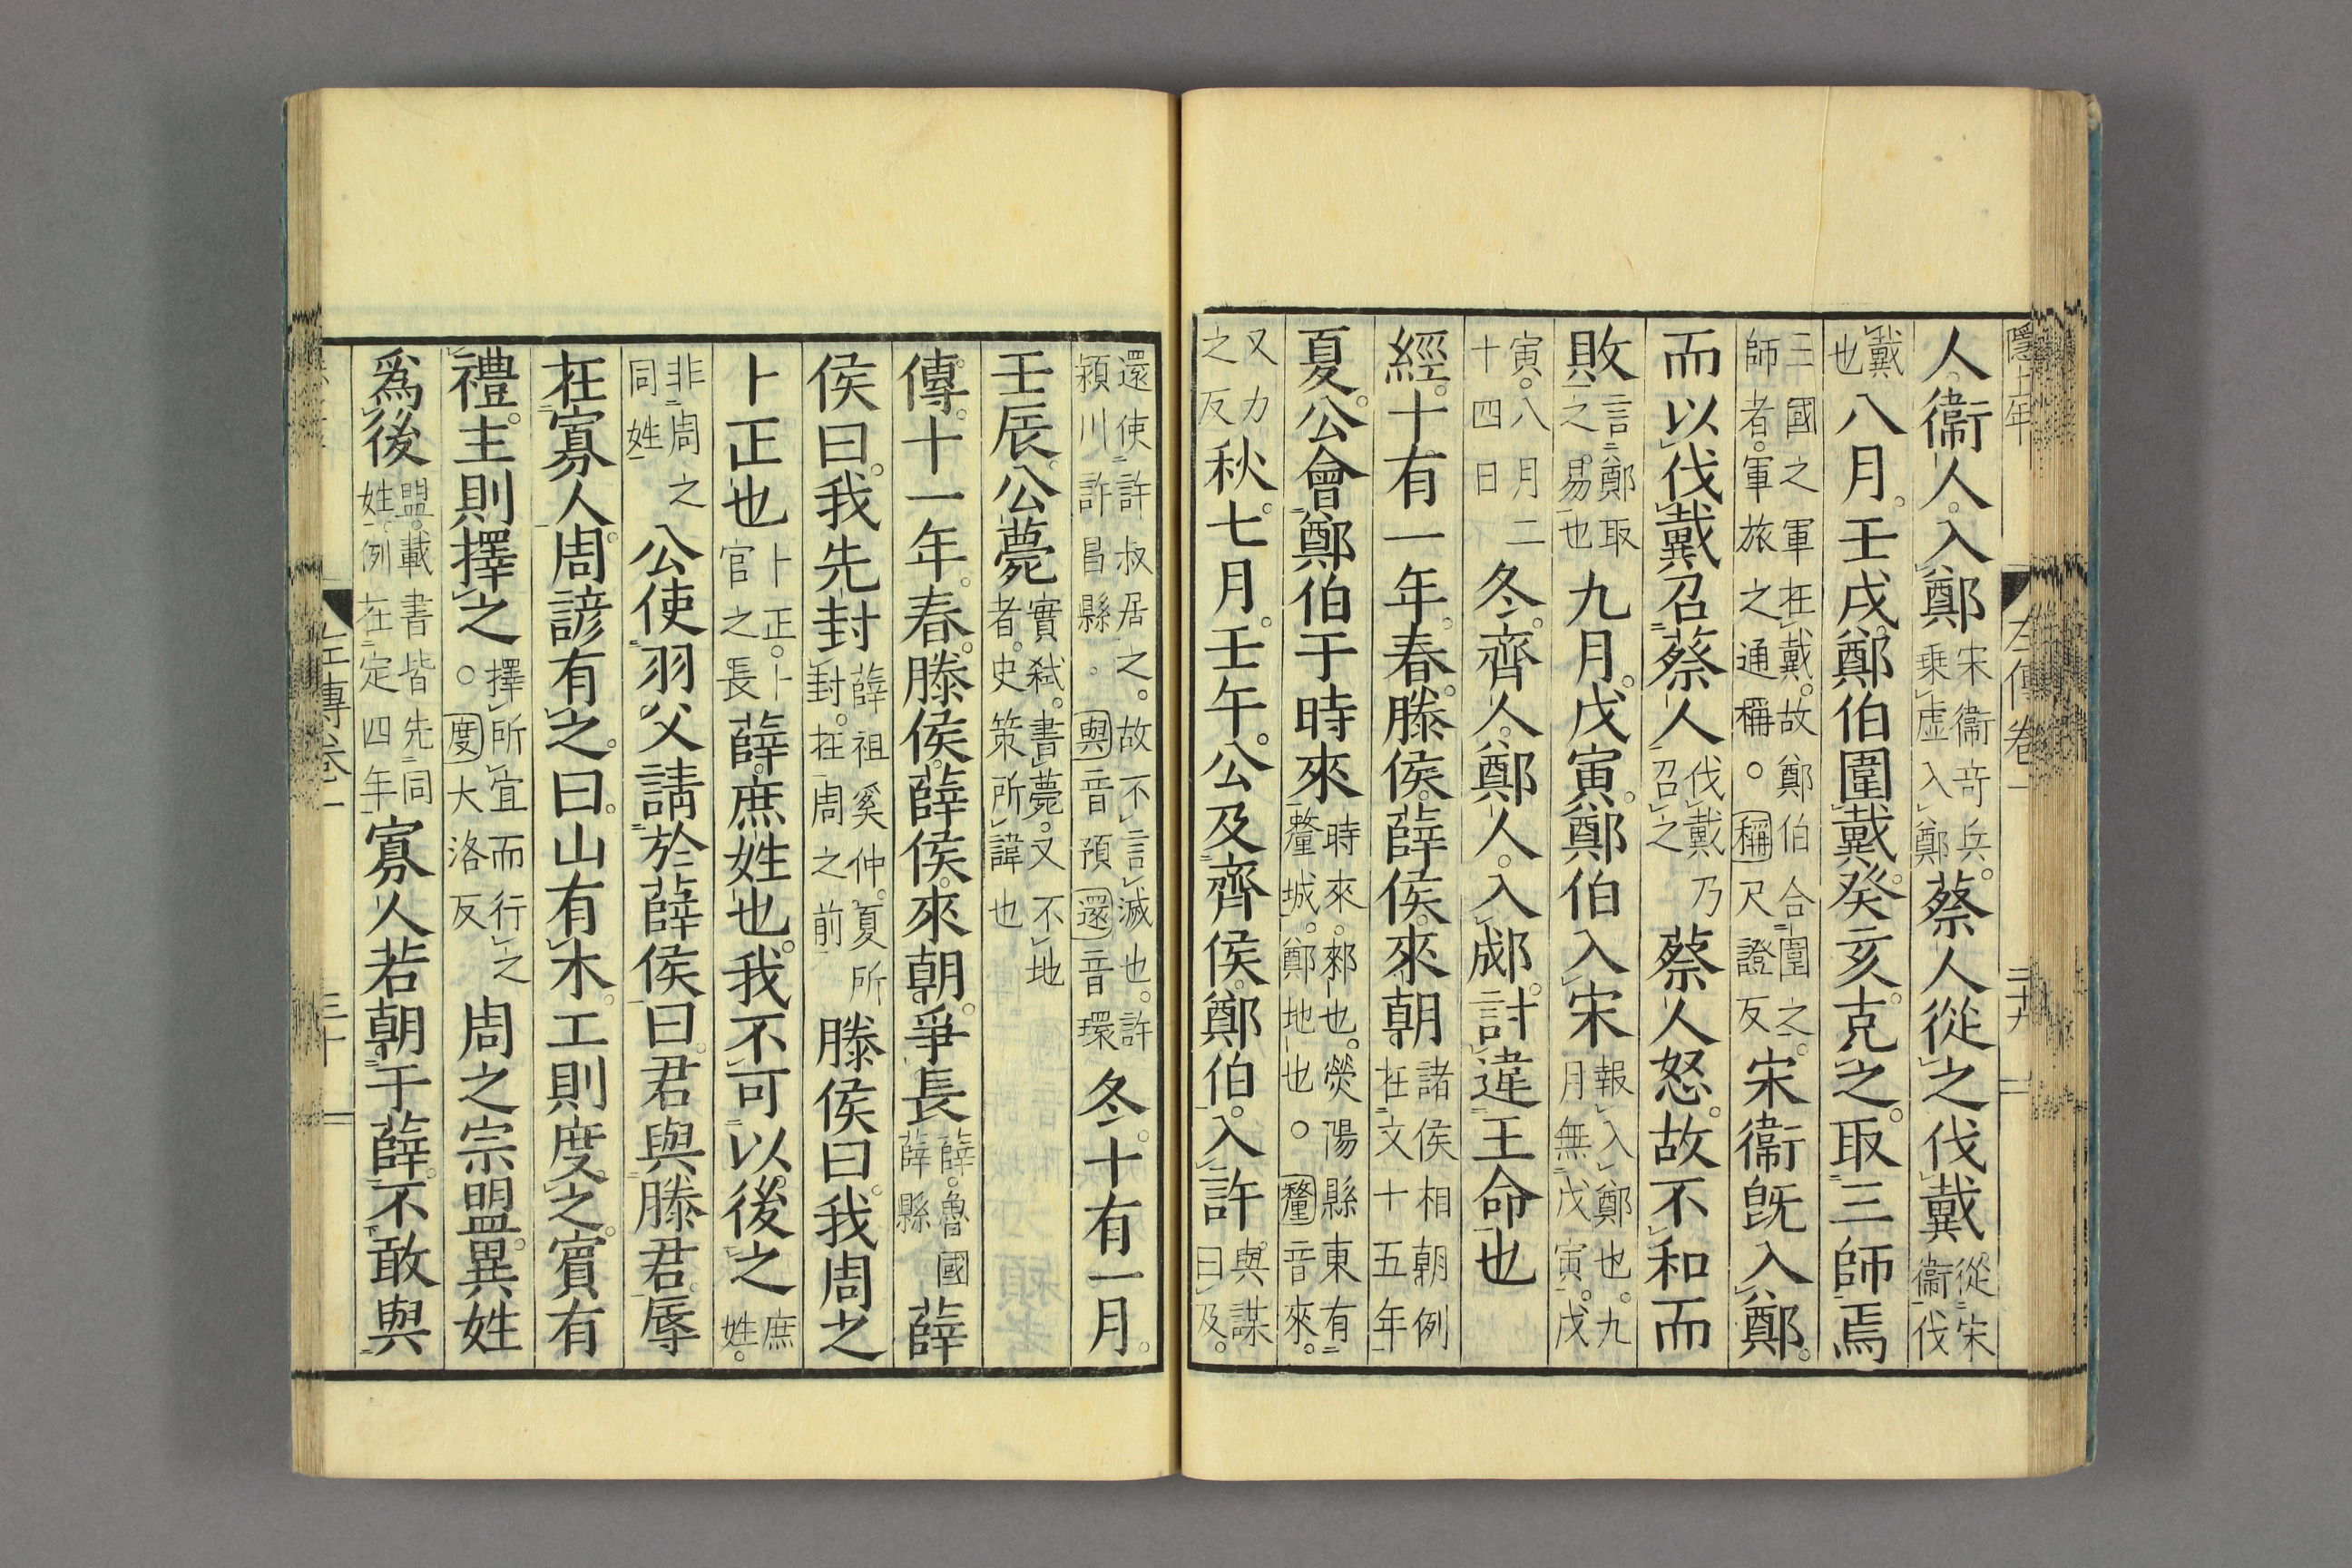 隱十年　左傳卷一　二十九
人衞人。入鄭宋衞奇兵。乘虛入鄭蔡人從之伐戴從宋衞伐
戴也八月。壬戌。鄭伯圍戴。癸亥。克之。取三師焉
三國之軍在戴。故鄭伯合圍之。師者。軍旅之通稱。○稱尺證反宋衞既入鄭。
而以伐戴召蔡人伐戴乃召之蔡人怒。故不和而
敗言鄭取之易也九月。戊寅。鄭伯入宋報入鄭也。九月無戊寅。戊
寅。八月二十四日冬。齊人。鄭人。入郕。討違王命也
經。十有一年。春。滕侯。薛侯。來朝諸侯相朝例在文十五年
夏。公會鄭伯于時來時來。郲也。熒陽縣東有釐城。鄭地也。○釐音來。
又力之反秋。七月。壬午。公及齊侯。鄭伯。入許與謀曰及。
還使許叔居之。故不言滅也。許潁川許昌縣。○與音預還音環冬。十有一月。
壬辰。公薨實弑。書薨。又不地者。史策所諱也
傳。十一年。春。滕侯。薛侯。來朝。爭長薛。魯國薛縣薛
侯曰。我先封薛祖奚仲。夏所封。在周之前滕侯曰。我周之
卜正也卜正。卜官之長薛。庶姓也。我不可以後之庶姓。
非周之同姓公使羽父請於薛侯曰。君與滕君。辱
在寡人。周諺有之。曰。山有木。工則度之。賓有
禮。主則擇之擇所宜而行之。○度大洛反周之宗盟。異姓
爲後盟。載書皆先同姓。例在定四年寡人若朝于薛。不敢與
左傳卷一　三十